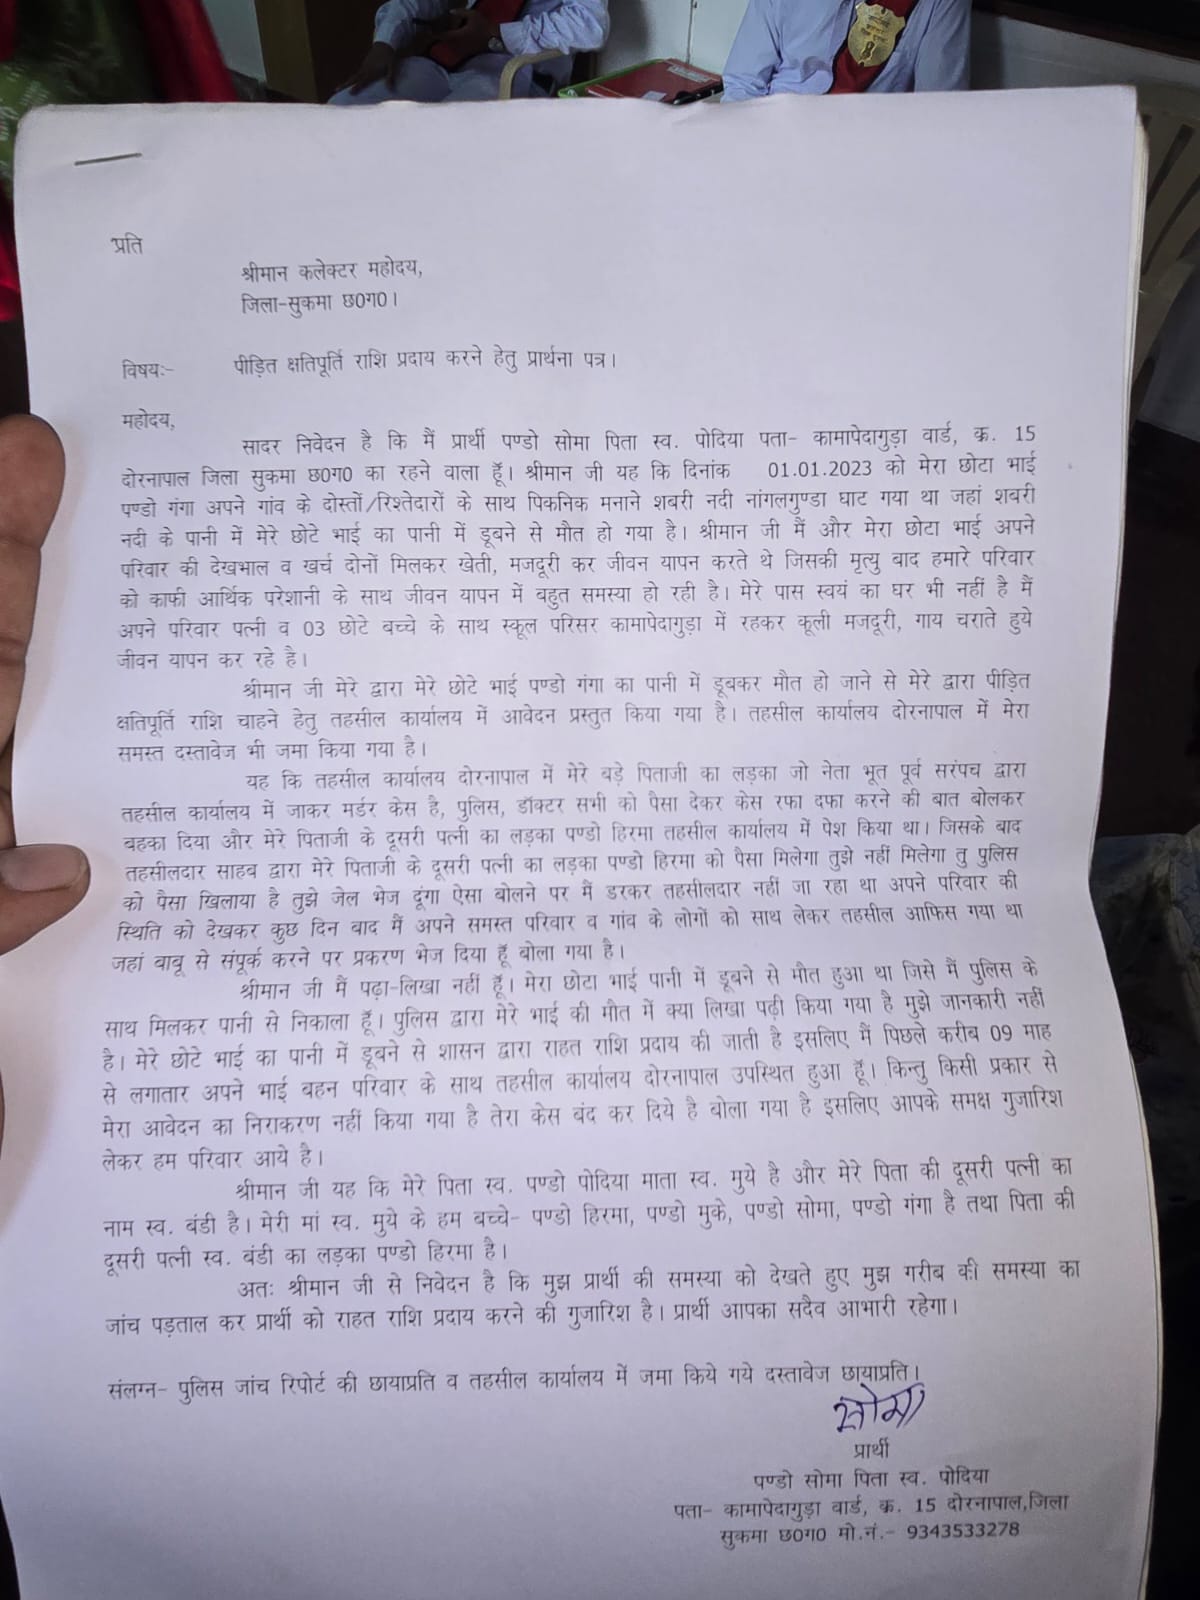 प्रति
श्रीमान कलेक्टर महोदय,
जिला-सुकमा छ0ग0।
विषयः- पीड़ित क्षतिपूर्ति राशि प्रदाय करने हेतु प्रार्थना पत्र।
महोदय,
सादर निवेदन है कि मैं प्रार्थी पण्डो सोमा पिता स्व. पोदिया पता- कामापेदागुड़ा वार्ड, क्र. 15
दोरनापाल जिला सुकमा छ0ग0 का रहने वाला हूॅ। श्रीमान जी यह कि दिनांक 01.01.2023 को मेरा छोटा भाई
पण्डो गंगा अपने गांव के दोस्तों/रिश्तेदारों के साथ पिकनिक मनाने शबरी नदी नांगलगुण्डा घाट गया था जहां शबरी
नदी के पानी में मेरे छोटे भाई का पानी में डूबने से मौत हो गया है। श्रीमान जी मैं और मेरा छोटा भाई अपने
परिवार की देखभाल व खर्च दोनों मिलकर खेती, मजदूरी कर जीवन यापन करते थे जिसकी मृत्यु बाद हमारे परिवार
को काफी आर्थिक परेशानी के साथ जीवन यापन में बहुत समस्या हो रही है। मेरे पास स्वयं का घर भी नहीं है मैं
अपने परिवार पत्नी व 03 छोटे बच्चे के साथ स्कूल परिसर कामापेदागुड़ा में रहकर कूली मजदूरी, गाय चराते हुये
जीवन यापन कर रहे है।
श्रीमान जी मेरे द्वारा मेरे छोटे भाई पण्डो गंगा का पानी में डूबकर मौत हो जाने से मेरे द्वारा पीड़ित
क्षतिपूर्ति राशि चाहने हेतु तहसील कार्यालय में आवेदन प्रस्तुत किया गया है। तहसील कार्यालय दोरनापाल में मेरा
समस्त दस्तावेज भी जमा किया गया है।
यह कि तहसील कार्यालय दोरनापाल में मेरे बड़े पिताजी का लड़का जो नेता भूत पूर्व सरंपच द्वारा
तहसील कार्यालय में जाकर मर्डर केस है, पुलिस, डॉक्टर सभी को पैसा देकर केस रफा दफा करने की बात बोलकर
बहका दिया और मेरे पिताजी के दूसरी पत्नी का लड़का पण्डो हिरमा तहसील कार्यालय में पेश किया था। जिसके बाद
तहसीलदार साहब द्वारा मेरे पिताजी के दूसरी पत्नी का लड़का पण्डो हिरमा को पैसा मिलेगा तुझे नहीं मिलेगा तु पुलिस
को पैसा खिलाया है तुझे जेल भेज दूंगा ऐसा बोलने पर मैं डरकर तहसीलदार नहीं जा रहा था अपने परिवार की
स्थिति को देखकर कुछ दिन बाद मैं अपने समस्त परिवार व गांव के लोगों को साथ लेकर तहसील आफिस गया था
जहां वाबू से संपूर्क करने पर प्रकरण भेज दिया हूॅ बोला गया है।
श्रीमान जी मैं पढ़ा-लिखा नहीं हूॅ। मेरा छोटा भाई पानी में डूबने से मौत हुआ था जिसे मैं पुलिस के
साथ मिलकर पानी से निकाला हूॅ। पुलिस द्वारा मेरे भाई की मौत में क्या लिखा पढ़ी किया गया है मुझे जानकारी नहीं
है। मेरे छोटे भाई का पानी में डूबने से शासन द्वारा राहत राशि प्रदाय की जाती है इसलिए मैं पिछले करीब 09 माह
से लगातार अपने भाई बहन परिवार के साथ तहसील कार्यालय दोरनापाल उपस्थित हुआ हूॅ। किन्तु किसी प्रकार से
मेरा आवेदन का निराकरण नहीं किया गया है तेरा केस बंद कर दिये है बोला गया है इसलिए आपके समक्ष गुजारिश
लेकर हम परिवार आये है।
श्रीमान जी यह कि मेरे पिता स्व. पण्डो पोदिया माता स्व. मुये है और मेरे पिता की दूसरी पत्नी का
नाम स्व. बंडी है। मेरी मां स्व. मुये के हम बच्चे- पण्डो हिरमा, पण्डो मुके, पण्डो सोमा, पण्डो गंगा है तथा पिता की
दूसरी पत्नी स्व. बंडी का लड़का पण्डो हिरमा है।
अतः श्रीमान जी से निवेदन है कि मुझ प्रार्थी की समस्या को देखते हुए मुझ गरीब की समस्या का
जांच पड़ताल कर प्रार्थी को राहत राशि प्रदाय करने की गुजारिश है। प्रार्थी आपका सदैव आभारी रहेगा।
संलग्न- पुलिस जांच रिपोर्ट की छायाप्रति व तहसील कार्यालय में जमा किये गये दस्तावेज छायाप्रति।
सोमा
प्रार्थी
पण्डो सोमा पिता स्व. पोदिया
पता- कामापेदागुड़ा वार्ड, क्र. 15 दोरनापाल,जिला
सुकमा छ0ग0 मो.नं.- 9343533278